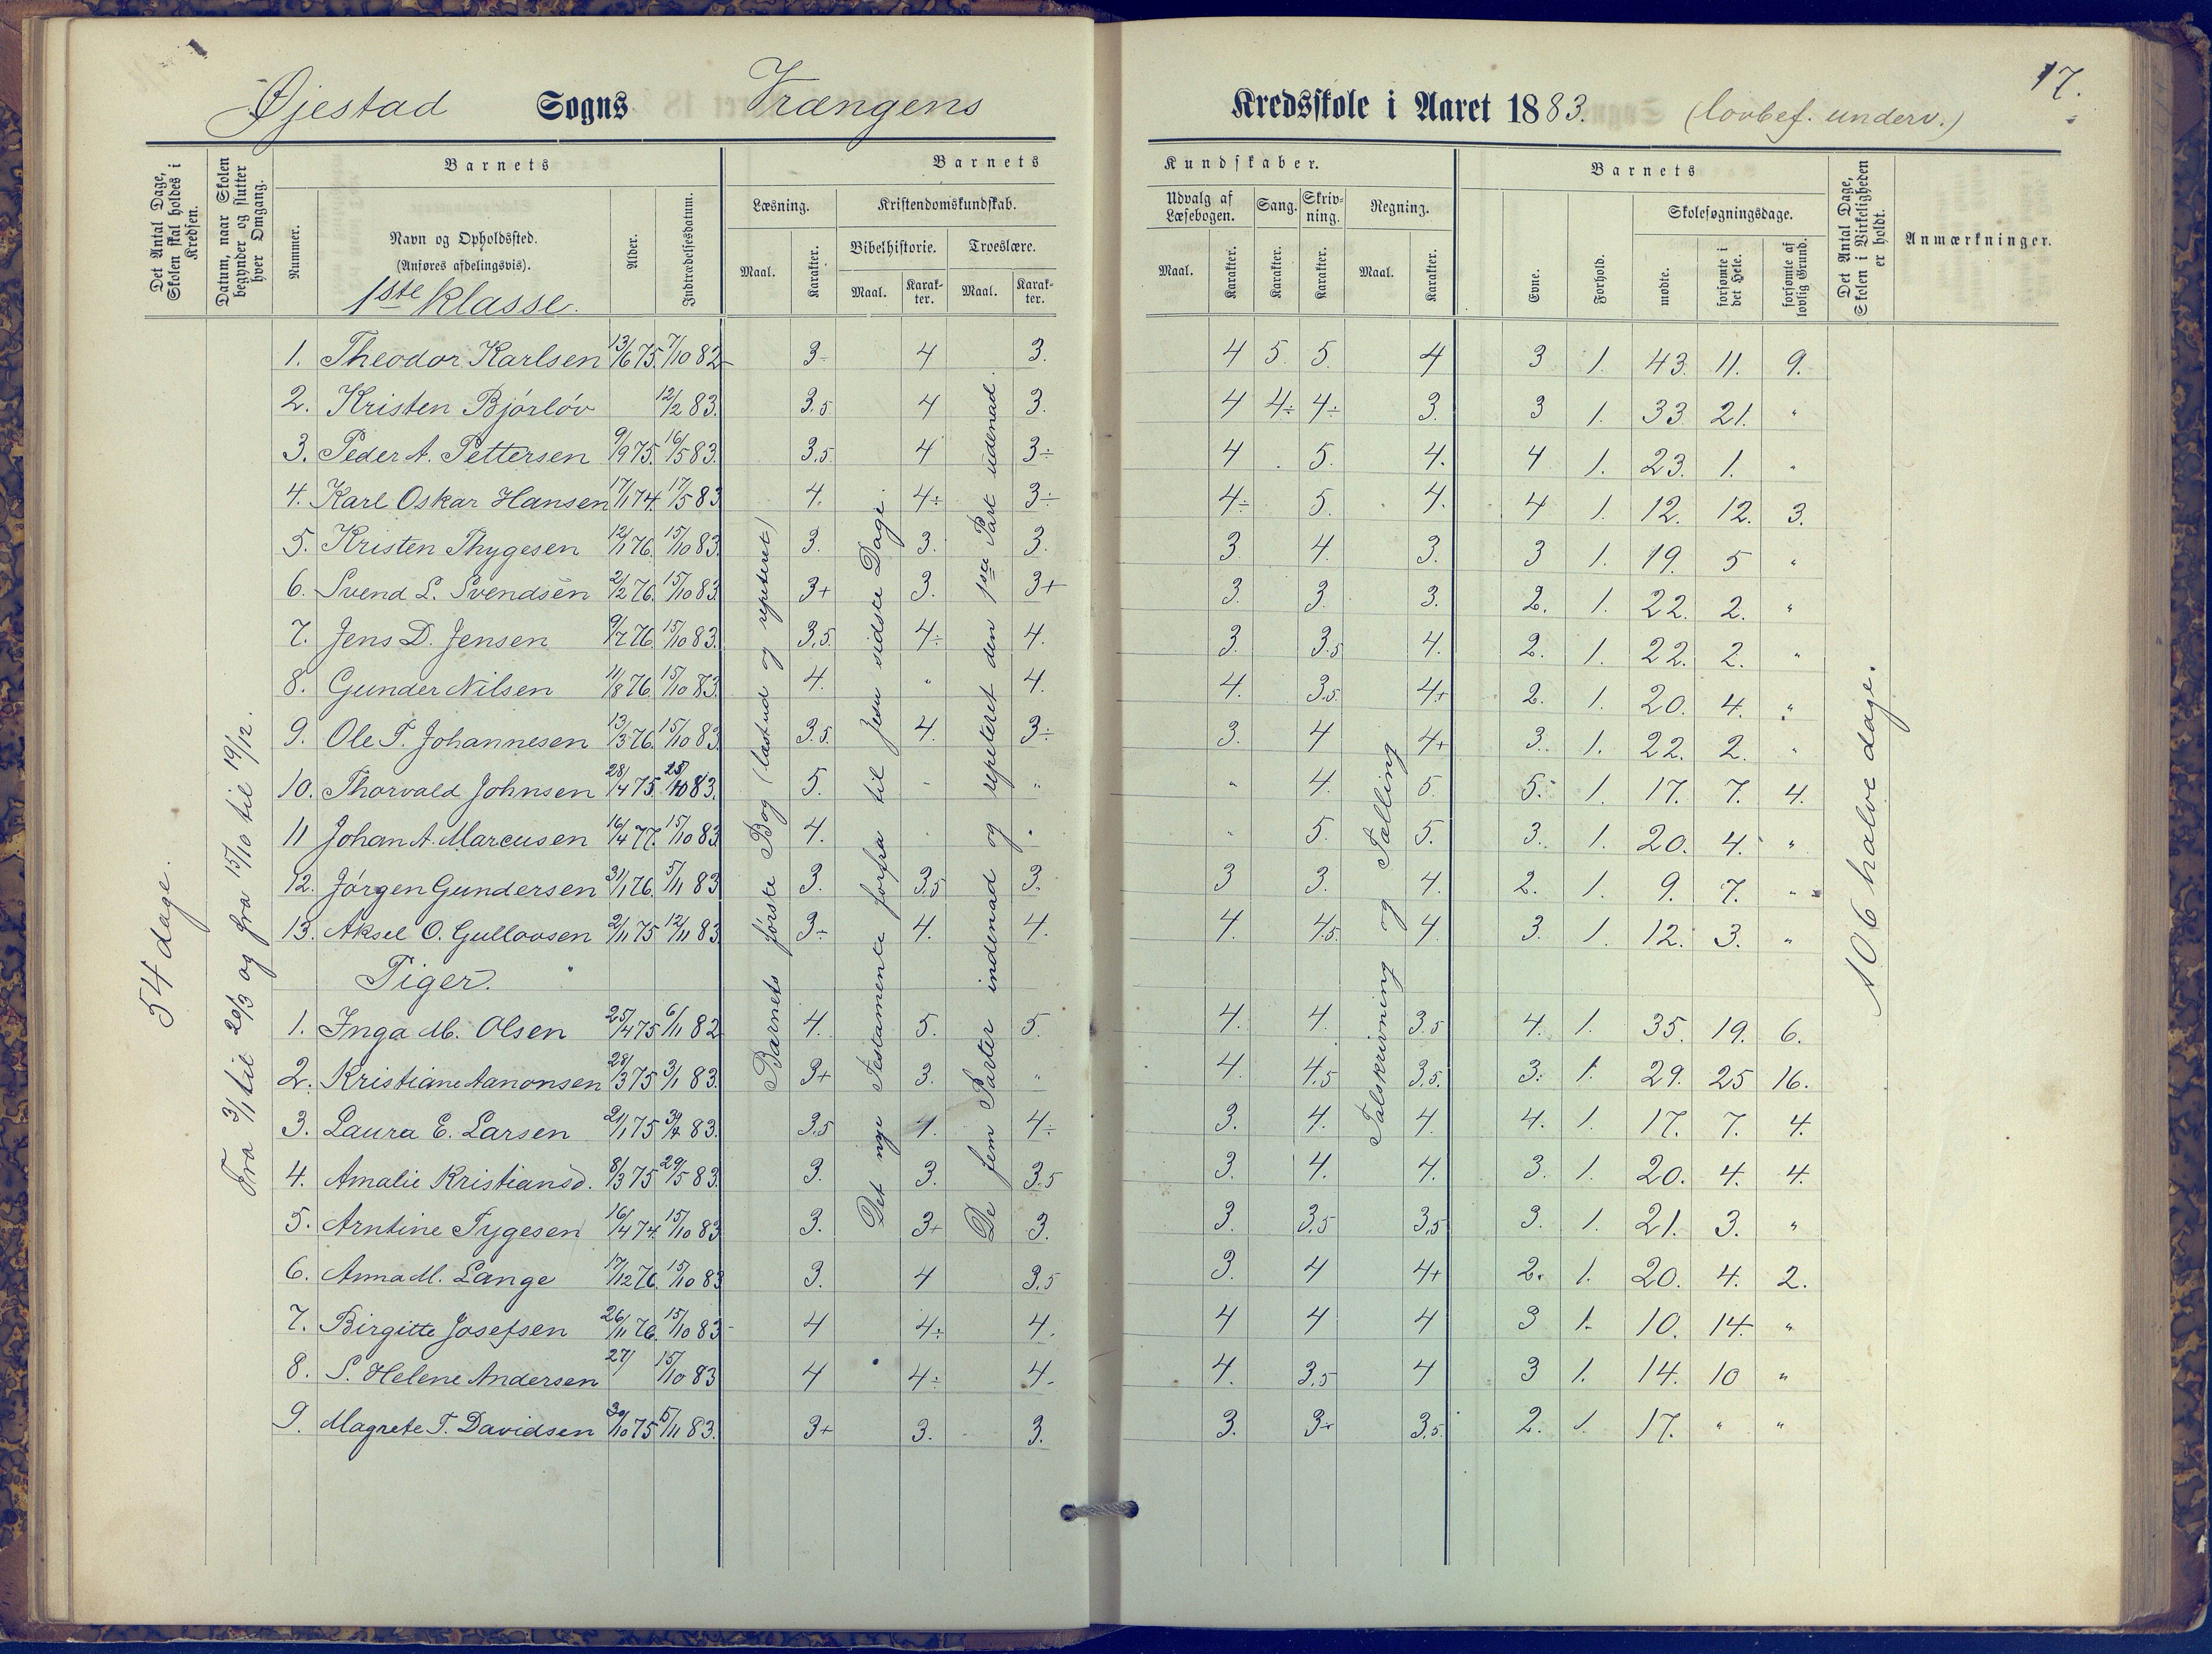 17.
Øjestad Sogns Vrængens Kredsskole i Aaret 1883. (lovbef. underv.)
Det Antal Dage, Skolen skal holdes i Kredsen.
Datum, naar Skolen begynder og slutter hver Omgang.
Barnets
Nummer.
Navn og Opholdssted.
(Anføres afdelingsvis).
1ste klasse.
Alder.
Indtrædelsesdatum.
Barnets Kundskaber.
Læsning.
Maal.
Karakter.
Kristendomskundskab.
Bibelhistorie.
Troeslære.
Maal.
Karakter.
Maal.
Karakter.
Udvalg af Læsebogen.
Maal.
Karakter.
Sang.
Karakter.
Skrivning.
Karakter.
Regning.
Maal.
Karakter.
Barnets
Evne.
Forhold.
Skolesøgningsdage.
mødte.
forsømte i det Hele.
forsømte af lovlig Grund.
Det Antal Dage, Skolen i Virkeligheden er holdt.
Anmærkninger.
54 dage.
Fra 3/1 til 20/3 og fra 15/10 til 19/12.
Barnets første Bog (læst ud og repeteret)
Det nye Testamente forfra til Jesu sidste Dage.
De fem Parter indenad og repeteret den 1ste Part udenad.
Talskrivning og Tælling
106 halve dage.
1. Theodor Karlsen 13/6 75. 7/10 82 3÷ 4 3. 4 5 5. 4 3 1. 43. 11. 9.
2. Kristen Bjórlóv 12/2 83. 3.5 4 3. 4 4÷ 4÷ 3. 3 1. 33. 21. "
3. Peder A. Pettersen 9/9 75. 16/5 83. 3.5 4 3÷ 4 5. 4. 4 1. 23. 1. "
4. Karl Oskar Hansen 17/1 74. 17/5 83 4. 4÷ 3÷ 4÷ 5. 4. 4 1. 12. 12. 3.
5. Kristen Thygesen 12/1 76. 15/10 83. 3. 3. 3. 3 4. 3. 3 1. 19. 5 "
6. Svend L. Svendsen 2/2 76. 15/10 83. 3+ 3. 3+ 3. 3. 3. 2. 1. 22. 2. "
7. Jens D. Jensen 9/7 76. 15/10 83. 3.5. 4÷ 4. 3. 3.5 4. 2. 1. 22. 2. "
8. Gunder Nilsen 11/8 76. 15/10 83. 4. " 4. 4. 3.5. 4+ 2. 1. 20. 4. "
9. Ole T. Johannesen 13/3 76. 15/10 83. 3.5. 4. 3÷ 3. 4 4+ 3. 1. 22. 2. "
10. Thorvald Johnsen 28/4 75. 10 83. 5. - " " 4. 5. 5. 1. 17. 7. 4.
11 Johan A. Marcusen 16/4 77. 15/10 83 4. " " 5. 5. 3. 1. 20. 4. "
12. Jórgen Gundersen 31/1 76. 5/11 83 3. 3.5 3. 3 3. 4. 2. 1. 9. 7. "
13. Aksel O. Gullovsen 2/11 75 12/11 83 3÷ 4. 4. 4. 4.5. 4. 3. 1. 12. 3. "
Piger.
1. Inga M. Olsen 25/4 75 6/11 82 4. 5. 5. 4. 4. 3.5 4. 1. 35. 19. 6.
2. Kristiane Aanonsen 28/3 75 3/1 83. 3+ 3. " 4. 4.5 3.5. 3. 1. 29. 25 16.
3. Laura E. Larsen 21/1 75 83. 3.5 4. 4÷ 3. 4. 4. 4. 1. 17. 7. 4.
4. Amalie Kristiansd. 8/3 75 29/5 83. 3. 3. 3.5 3. 4. 4. 3. 1. 20. 4. 4.
5. Arntine Tygesen 16/4 74. 15/10 83 3. 3+ 3. 3. 3.5 3.5 3. 1. 21. 3. "
6. Anna M. Lange 17/12 76. 15/10 83 3. 4 3.5 3. 4 4+ 2. 1. 20. 4. 2.
7. Birgitte Josefsen 26/11 76. 15/10 83 4 4÷ 4. 4 4 4 3 1. 10. 14. "
8. S. Helene Andersen 27/ 15/10 83 4 4÷ 4. 4. 3.5 4 3 1. 14. 10 "
9. Magrete T. Davidsen 30/10 75 5/11 83. 3+ 3. 3. 3. 3÷ 3.5. 2. 1. 17. " "